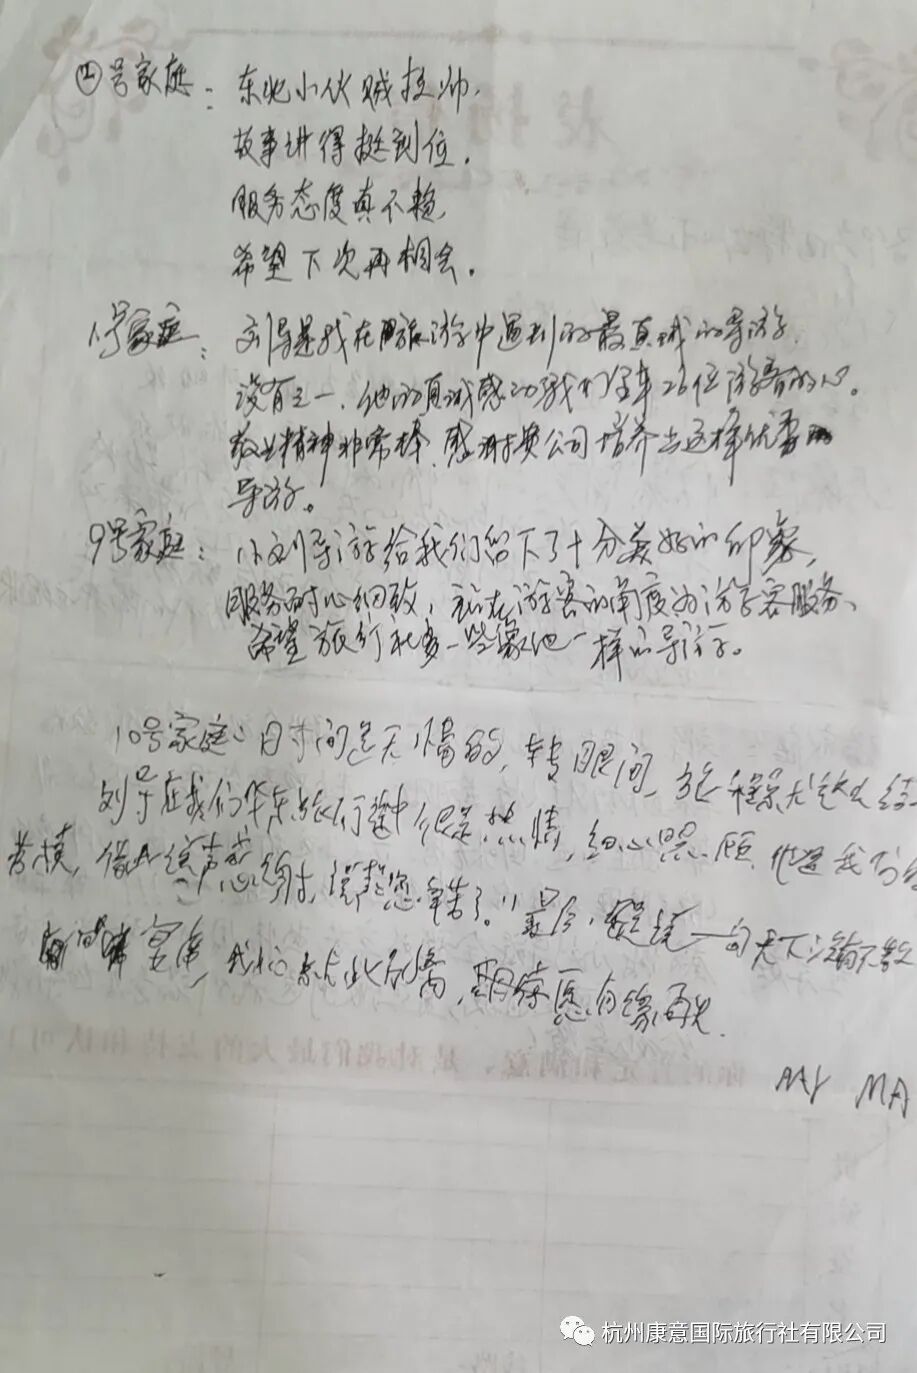 ④号家庭：东北小伙贼拉帅，
故事讲得挺到位，
服务态度真不赖，
希望下次再相会。
1号家庭：刘导是我在跟旅游中遇到的最真诚的导游，
没有之一，他的真诚感动我们全车26位游客的心。
敬业精神非常棒，感谢贵公司培养出这样优秀的
导游。
9号家庭：小刘导游给我们留下了十分美好的印象，
服务耐心细致，站在游客的角度为游客服务、
希望旅行社多一些象他一样的导游。
10号家庭：时间是无情的，转眼间，旅程
刘导在我们华东旅行途中很是热情，细心照顾，他是我们的
说声感谢，您辛苦了。最后，一句天下没有不散
的宴席，我们就此别离，愿有缘再见
杭州康意国际旅行社有限公司